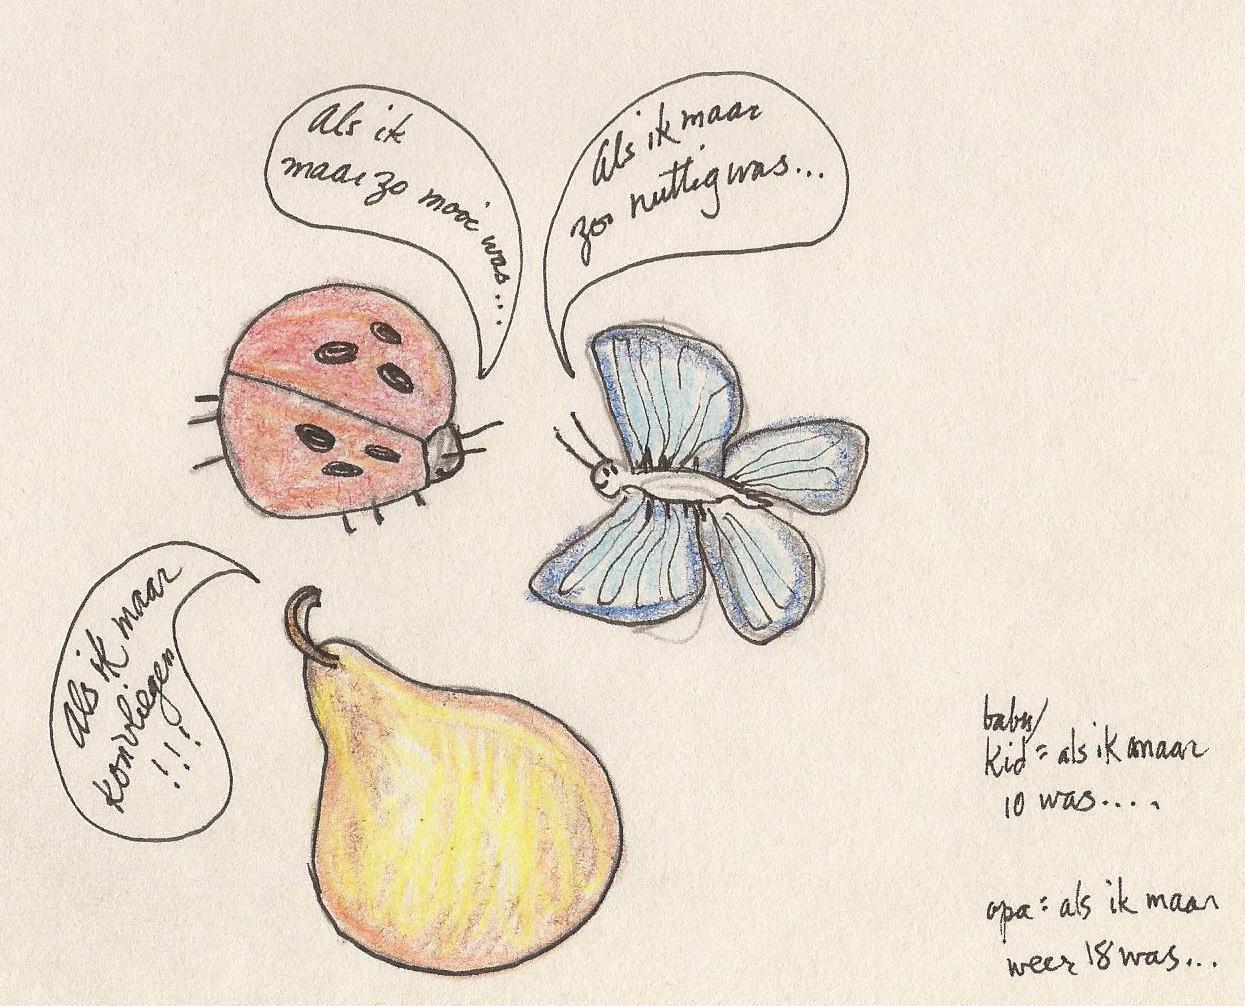 Als ik
maar zo mooi was...
Als ik maar
zoo nuttig was...
Als ik maar
kon vliegen
!!!
baby/
kid = als ik maar
10 was....
opa = als ik maar
weer 18 was...